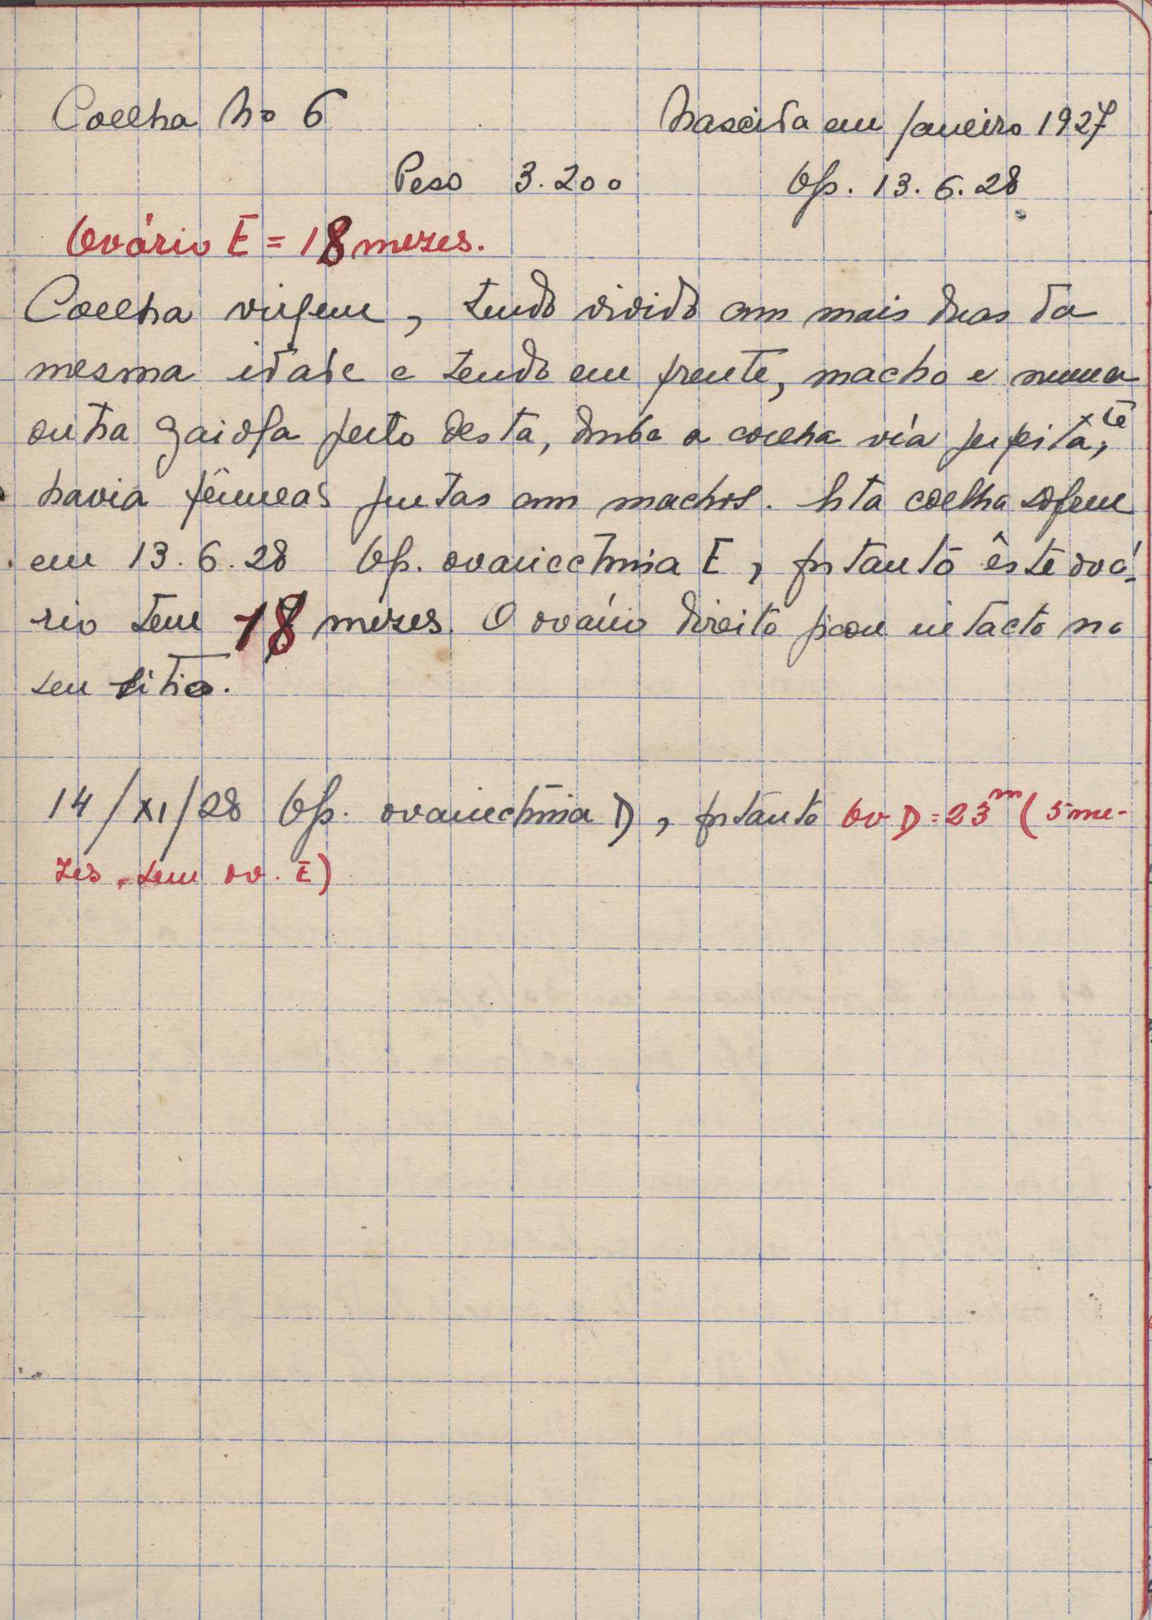 Coelha No 6 Nascida em Janeiro 1927
Peso 3.200 Op. 13.6.28
Ovário E = 18 mezes.
Coelha virgem, tendo vivido com mais duas da
mesma idade e tendo em frente, macho e numa
outra gaiola perto desta, donde a coelha via perfeitate,
havia fêmeas juntas com machos. Esta coelha sofreu
em 13.6.28 Op. ovariectomia E, portanto êste ová-
rio tem 18 mezes. O ovário direito ficou intacto no
seu sitio.
14/XI/28 Op. ovariectomia D, portanto Ov D = 23m (5 me-
zes sem ov. E)